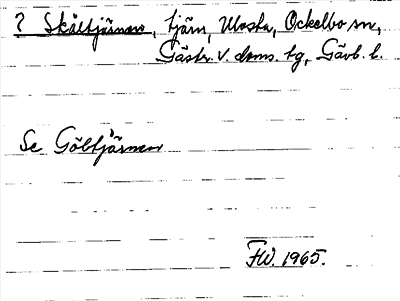 ? Skåltjärnen, tjärn, Ulvsta, Ockelbo sn,
Gästr. V. doms. tg, Gävb. l.
Se Göltjärnen
FW. 1965.